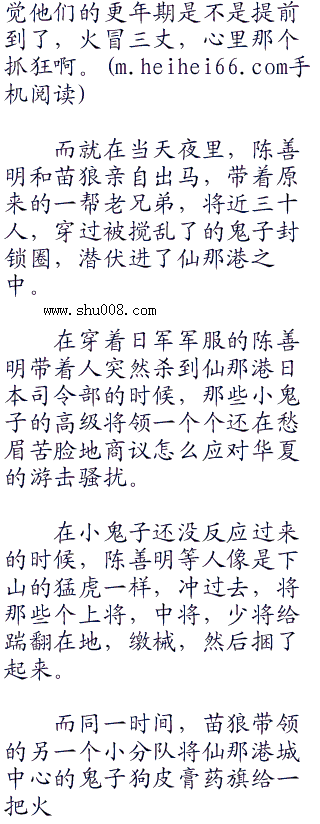 觉他们的更年期是不是提前
到了，火冒三丈，心里那个
抓狂啊。(m.heihei66.com手
机阅读)
而就在当天夜里，陈善
明和苗狼亲自出马，带着原
来的一帮老兄弟，将近三十
人，穿过被搅乱了的鬼子封
锁圈，潜伏进了仙那港之
中。
www.shu008.com
在穿着日军军服的陈善
明带着人突然杀到仙那港日
本司令部的时候，那些小鬼
子的高级将领一个个还在愁
眉苦脸地商议怎么应对华夏
的游击骚扰。
在小鬼子还没反应过来
的时候，陈善明等人像是下
山的猛虎一样，冲过去，将
那些个上将，中将，少将给
踹翻在地，缴械，然后捆了
起来。
而同一时间，苗狼带领
的另一个小分队将仙那港城
中心的鬼子狗皮膏药旗给一
把火